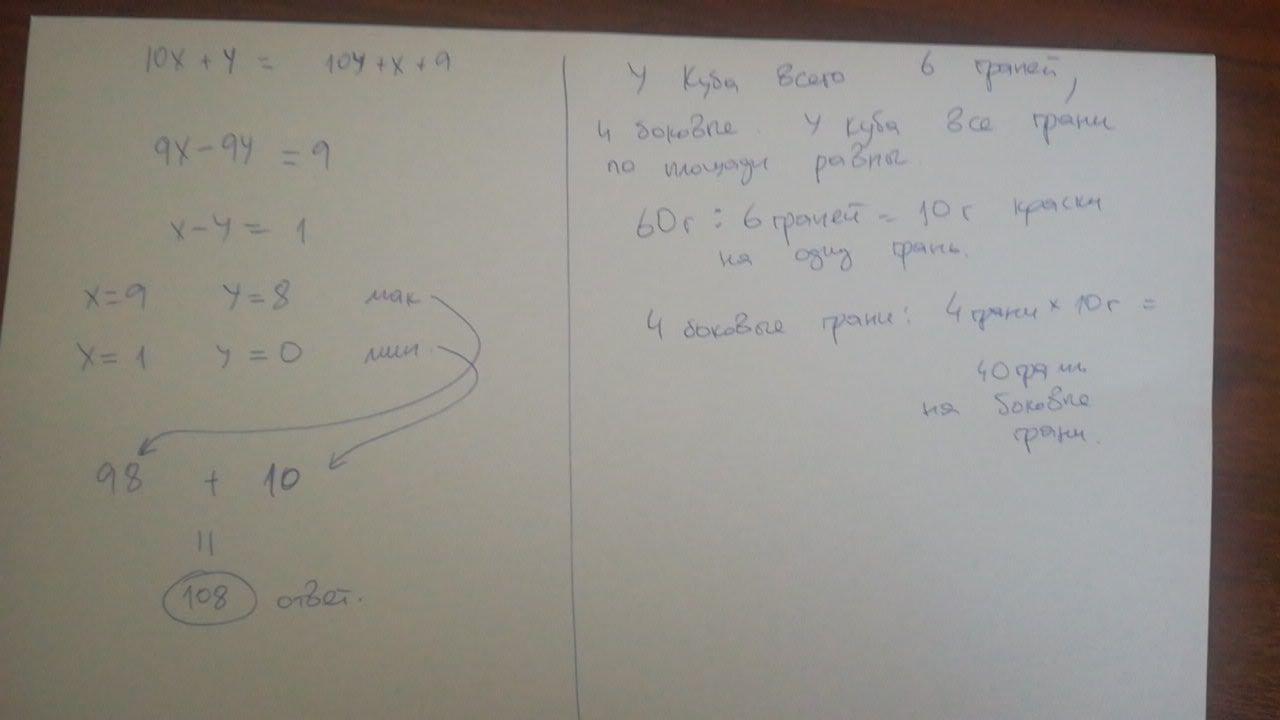 10x + y = 10y + x + 9
9x - 9y = 9
x - y = 1
x = 9 y = 8 мак
x = 1 y = 0 мин.
98 + 10
=
108 ответ.
У куба всего 6 граней,
4 боковые. У куба все грани
по площади равны.
60г : 6 граней = 10г краски
на одну грань.
4 боковые грани: 4 грани × 10г =
40 грамм
на боковые
грани.